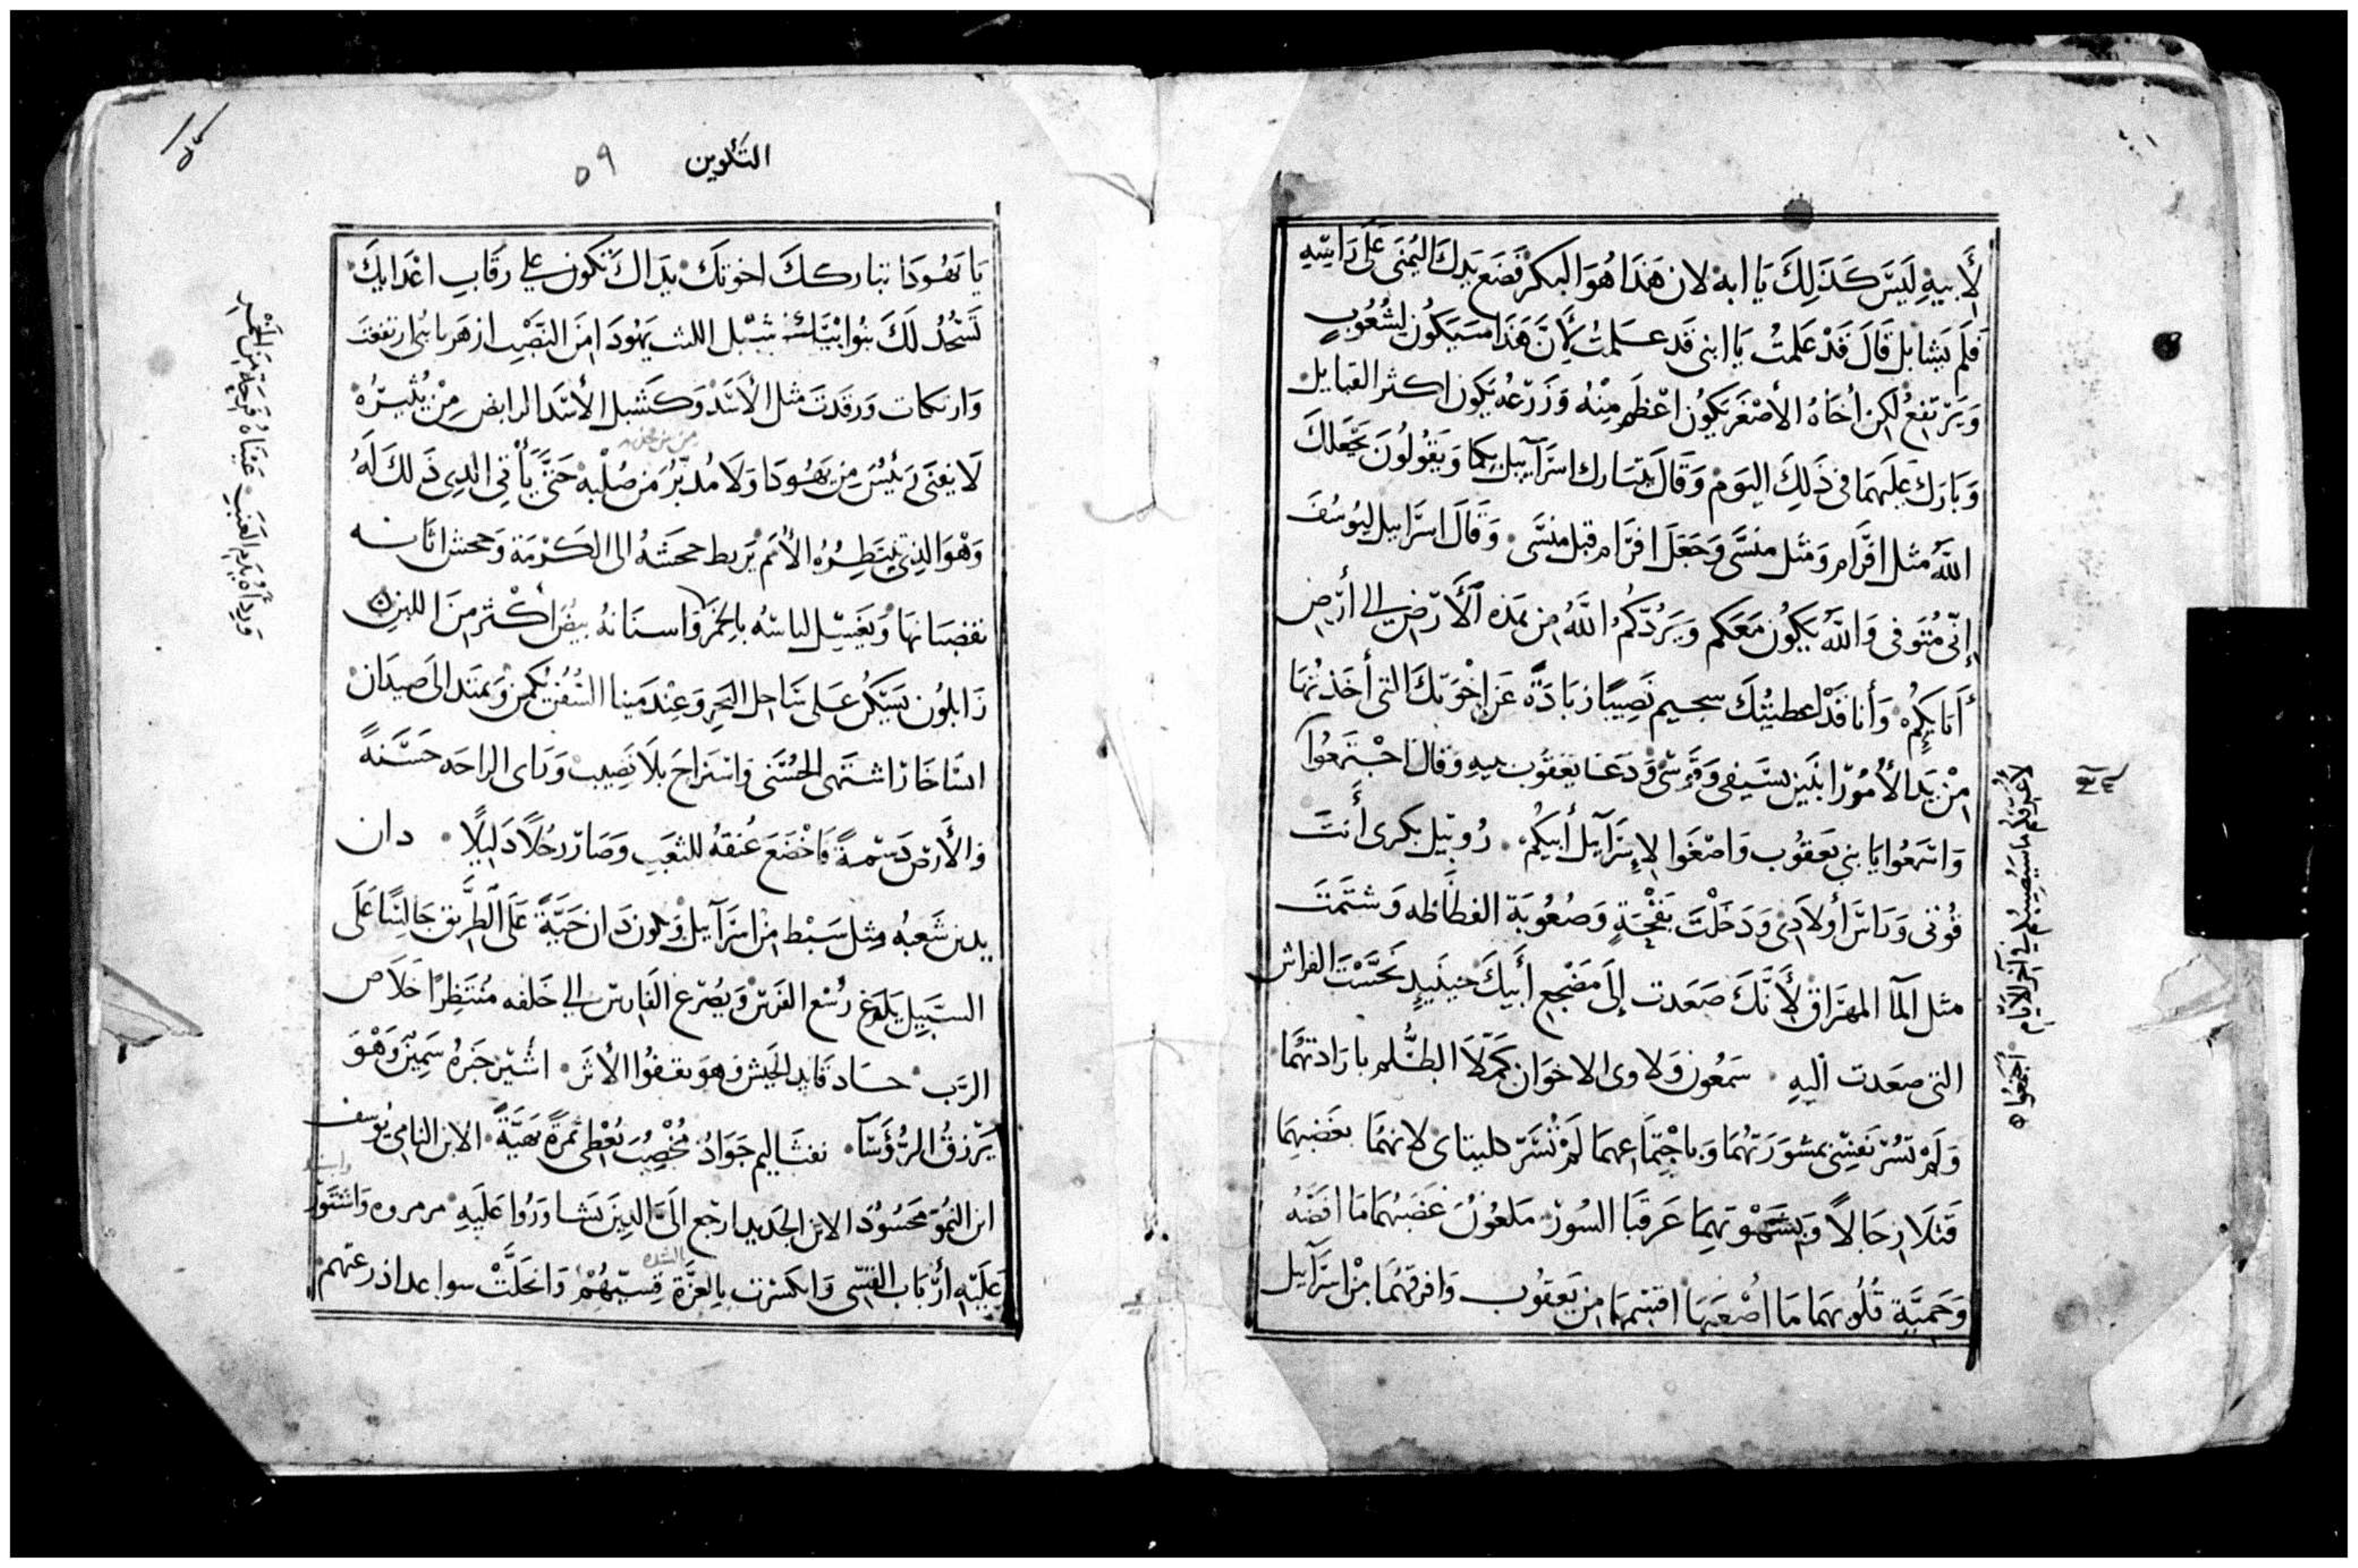 لِأَبِيهِ لَيسَ كَذَلِكَ يَا ابه لان هَذَا هُوَ البكر فَضَع يَدكَ اليُمنَى عَلَى رَاسِهِ
فلَم يَشا بل قَالَ قَدْ عَلمتُ يَا ابنى قَد علمتُ لِأَنَّ هَذَا سَيَكُون لِشُعُوبٍ
وَيَرْتفِعُ لكِن أخَاهُ الأَصْغَر يَكُون اعْظَم مِنْهُ وَزَرعُه يَكون اكثر القبايل
وَبَارَكَ عَلَيهمَا فى ذَلِكَ اليَوم وَقَالَ يتبَارك اسرَآييل بِكما وَيَقُولُونَ يَجْعَلكَ
اللَّه مثل افرَام وَمثل منَسَّى وَجَعَلَ افرَام قبل منسَّى وَقَالَ اسرَاييل ليُوسُفَ
إنِّى مُتَوفى وَاللَّه يَكُون مَعَكم وَيَرُدّكُم اللَّهُ مِن هَذه الأَرْض الى أرْضِ
أَبَايِكُم وَأنا قَدْ اعطيتُكَ سجيم نَصِيبًا زيَادَةً عَن اخْوَتكَ التى أخَذتُهَا
مِنْ يَدِ الأُمُورَانيّين بسَيفى وَقَوسى وَدَعَا يَعقُوب بنيه وَقالَ اجْتَمعُوا
لاعَرِّفكُم مَا سَيُصِيبكُم فِي آخر الأيَّام اجمعُوا
وَاسْمَعُوا يَا بني يَعقوُب وَاصْغَوا لإِسرَآييل أبيكُم رُوبيل بكرى أنتَ
قُوتى وَرَاس أولَادى وَدَخَلْتَ بقحَةٍ وَصُعُوبَة الفظاظه وَشتَمتَ
مثل المآ المهرَاق لأَنَّكَ صَعَدت إلَى مَضْجعِ أبيكَ حينَيذٍ نَجَّسْتَ الفراش
التى صعَدت اليهِ سَمعُون وَلاوى الاخوَان كمّلَا الظُّلم بارَادتهُمَا
وَلَم تسُرّ نَفسِى بمَشُورَتهُمَا وَباجتِمَاعهمَا لَمْ تُسَرّ كليتاى لانهُمَا بغَضَبِهمَا
قَتلَا رجَالاً وَبشَهْوَتهمَا عَرقبَا السُور مَلعُون غَضَبُهمَا مَا افضّهُ
وَحَميَّة قُلُوبهمَا مَا أصْعَبَهَا اقسمهمَا مِن يَعقُوب وَافرقهُمَا مِن اسرَآييل
التكوين ٥٩
يَا يَهُودَا تباركك اخوتك يدَاكَ تكون على رقَابِ اعْدَايكَ
تَسْجُدُ لَكَ بنُوا ابيكَ شبْل الليث يَهُودَا مِنَ القَضِيب ازهر يابنى ارتفعتَ
وَاتكات وَرقدتَ مثل الأَسَد وَكشبل الأسَد الرابض مِنْ يُثيرُهُ
لَا يفنَى رَئيسٌ مِن يَهُودَا وَلَا مُدبّر مِن صُلْبه حَتَّى يَأْتى الذِى ذَلكَ لَهُ
وَهْوَ الذِى يَنتَظِرُهُ الأُمَم يَربط جحَشَهُ الى الكَرْمَة وَجحش اتانه
بقضبَانهَا وَيَغسِل لباسَهُ بالخَمْر وَاسنَانهُ بيضٌ أكْثر مِنَ اللبن
وَردَاهُ بدَمِ العنَب عَينَاهُ فَرحَة مِنَ الخَمْر
زَابلُون يَسكن عَلَى سَاحل البَحر وَعنْدَ مينا السُفن يكمن وَيمتَد الى صيدَان
اسَاخَار اشتَهى الحُسْنَى وَاسْترَاح بلَا نَصيب وَرَاى الراحَه حَسَنةً
وَالأَرض دَسمةً فَاخْضَعَ عُنقهُ للتعَبِ وَصَار رجُلًا ذَلِيلًا دان
يدين شَعبهُ مثل سَبط من اسرَآييل وَيكون دَان حَيَّةً عَلَى الطَّريق جَالسًا عَلَى
السَّبيل يَلدَغ رُسْغ الفَرَس وَيصْرَع الفَارس الى خَلفه مُنتَظِرًا خَلَاص
الرَّب جاد قايد الجَيش وَهوَ يقفُوا الأثَر اشير خبزهُ سَمين وَهْوَ
يَرزقُ الرُّؤسَآ نفتَاليم جَوَادٌ مُخْصِبٌ يُعْطى ثمَرةً بَهيَّةً الابن النامى يُوسف
ابن النمُو مَحسُودٌ الابن الجَديد ارجع الىَّ الذِينَ تَشاوَرُوا عَلَيهِ مرمروه وَاستَوّر
عَلَيْهِ أرْبَاب القسِى وَانكسَرَت بالعزَّة قِسِيّهُمْ وَانحَلَّتْ سواعد اذرعَتهم
بالشده